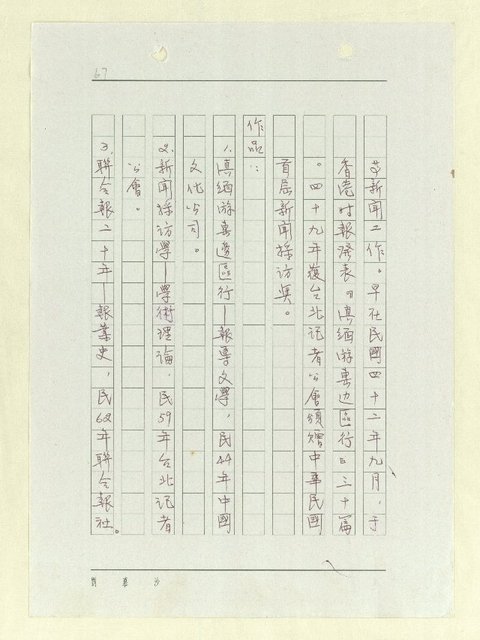 67
文新聞工作。早在民國四十二年九月，于
香港时報發表『滇緬游击边區行』三十篇
。四十九年獲台北记者公會頒贈中華民國
首屆新聞採访奖。
作品：
1. 滇緬游击邊區行—報導文學，民44年中國
文化公司。
2. 新聞採访學—學術理論，民59年台北记者
公會。
3. 聯合報二十年—報業史，民62年聯合報社。
劉慕沙